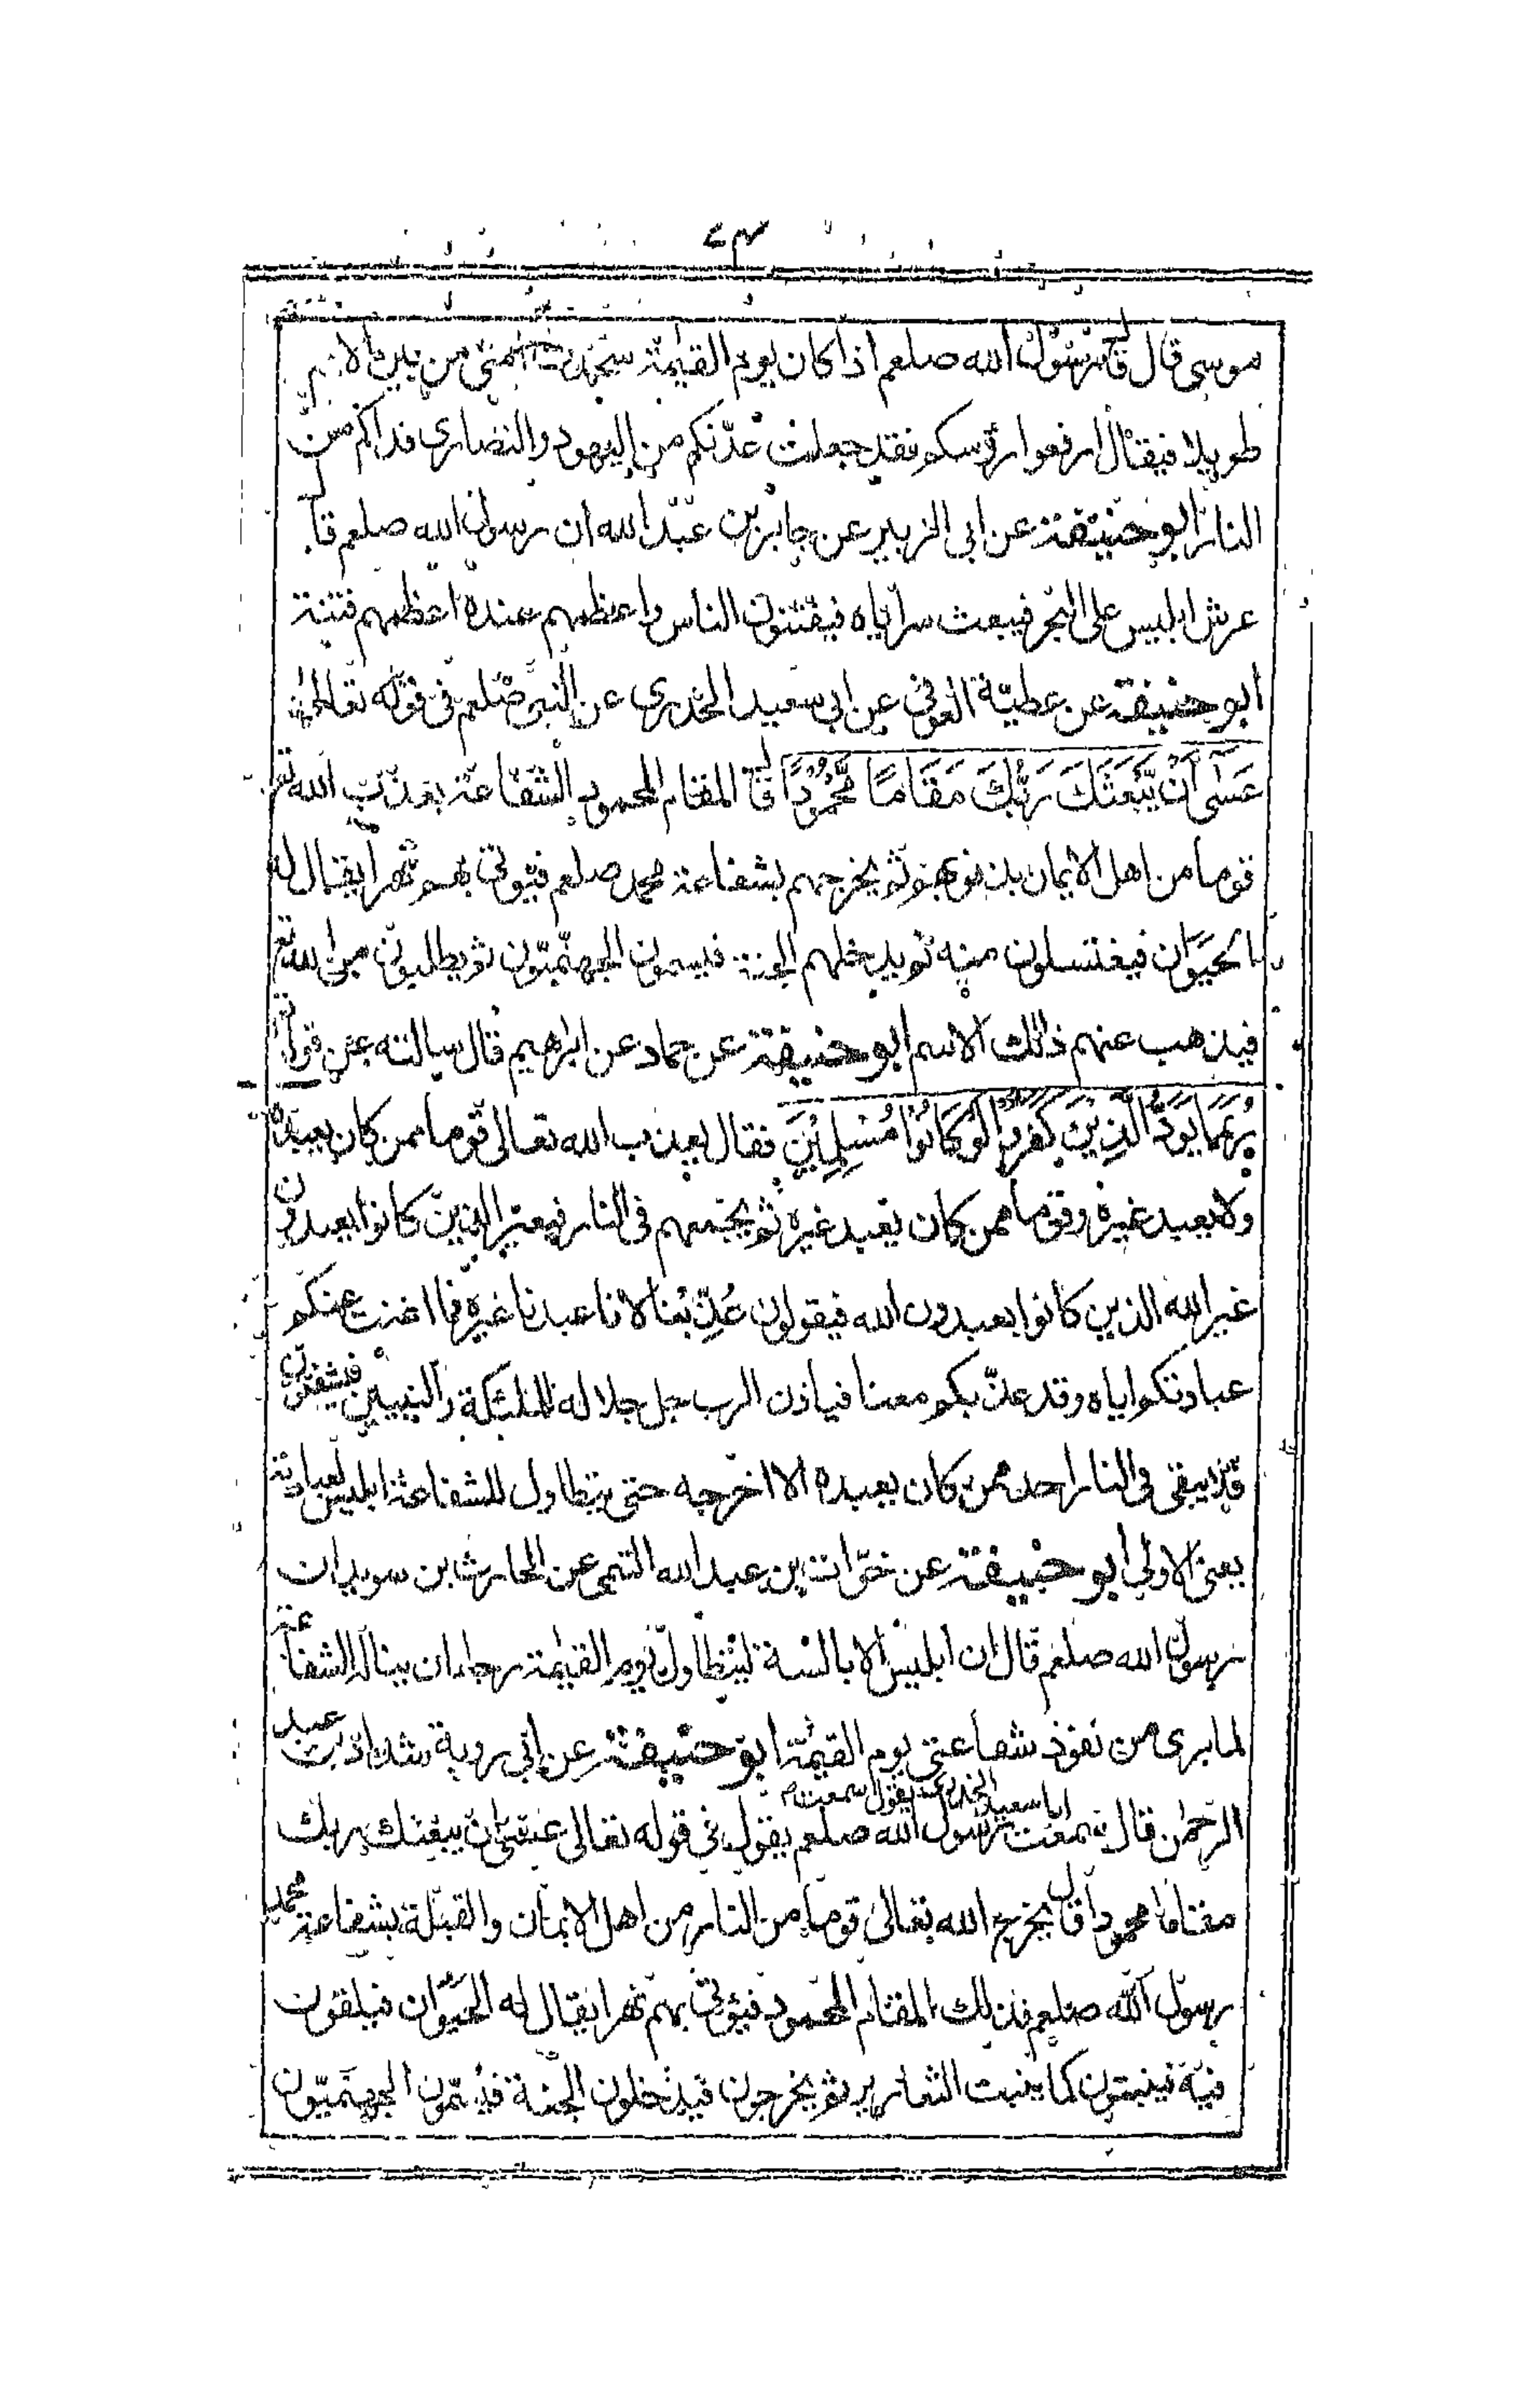 موسى قال قال رسول الله صلعم اذا كان يوم القيمة سجدت امتي من بين الا
طويلا فيقال ارفعوا رؤسكم فقد جعلت عدتكم من اليهود والنصارى فداكم من
النار ابو حنيفة عن ابى الزبير عن جابر بن عبد الله ان رسول الله صلعم قال
عرش ابليس على البحر فيبعث سراياه فيفتنون الناس واعظمهم عنده اعظمهم فتنة
ابو حنيفة عن عطية العوفى عن ابى سعيد الخدرى عن النبى صلعم فى قوله تعالى
عَسٰى اَنْ يَّبْعَثَكَ رَبُّكَ مَقَامًا مَّحْمُوْدًا قال المقام المحمود الشفاعة يعذب الله تع
قوما من اهل الايمان بذنوبهم ثم يخرجهم بشفاعة محمد صلعم فيؤتى بهم نهرا يقال له
الحَيَوان فيغتسلون منه ثم يدخلهم الجنة فيسمون الجهنميون ثم يطلبون من الله تع
فيذهب عنهم ذلك الاسم ابو حنيفة عن حماد عن ابرهيم قال سالته عن قول
رُبَمَا يَوَدُّ الَّذِيْنَ كَفَرُوْا لَوْ كَانُوْا مُسْلِمِيْنَ فقال يعذب الله تعالى قوما ممن كان يعبده
ولا يعبد غيره وقوما ممن كان يعبد غيره ثم يجمعهم فى النار فيعير الذين كانوا يعبدون
غير الله الذين كانوا يعبدون الله فيقولون عُذِّبنا لانا عبدنا غيره فما اغنت عنكم
عبادتكم اياه وقد عذبكم معنا فياذن الرب جل جلاله للملئكة والنبيين فيشفعون
فلا يبقى فى النار احد ممن كان يعبده الا اخرجه حتى يتطاول للشفاعة ابليس لعبادته
يعنى الاولى ابو حنيفة عن خوات بن عبد الله التيمى عن الحارث بن سويد ان
رسول الله صلعم قال ان ابليس الابالسة ليتطاول يوم القيمة رجاء ان يناله الشفاعة
لما يرى من نفوذ شفاعتى يوم القيمة ابو حنيفة عن ابى روبة شداد بن عبد
الرحمن قال سمعت ابا سعيد الخدرى يقول سمعت رسول الله صلعم يقول فى قوله تعالى عسى ان يبعثك ربك
مقاما محمودا قال يخرج الله تعالى قوما من النار من اهل الايمان والقبلة بشفاعة محمد
رسول الله صلعم فذلك المقام المحمود فيؤتى بهم نهرا يقال له الحَيَوان فيلقون
فيه فينبتون كما ينبت الثعارير ثم يخرجون فيدخلون الجنة فيسمون الجهنميون